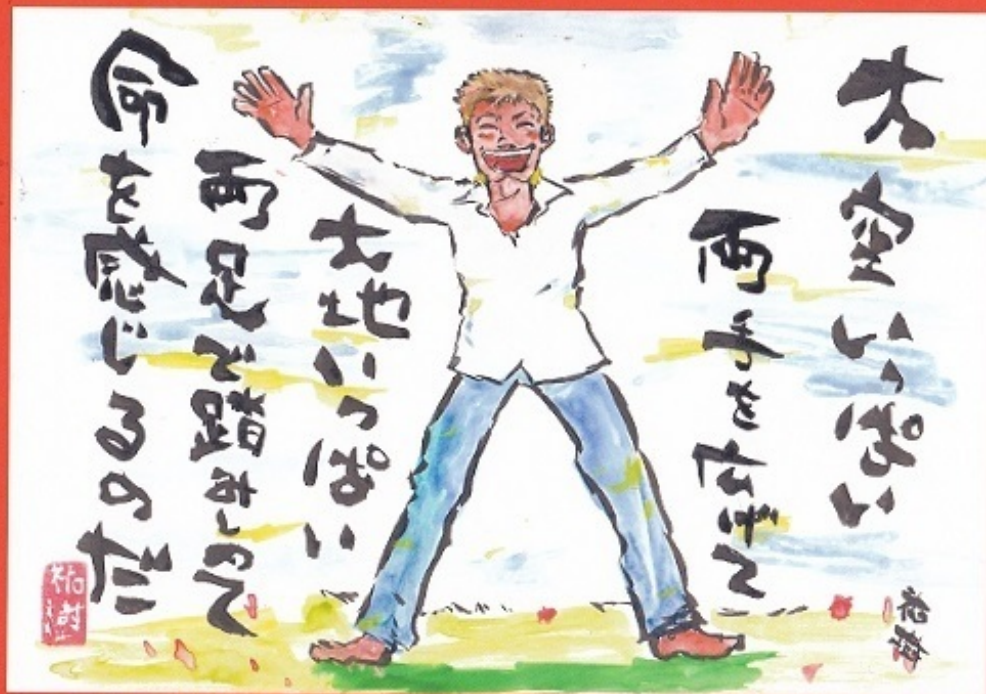 大空いっぱい
両手を広げて
大地いっぱい
両足で踏みしめて
命を感じるのだ
祐樹